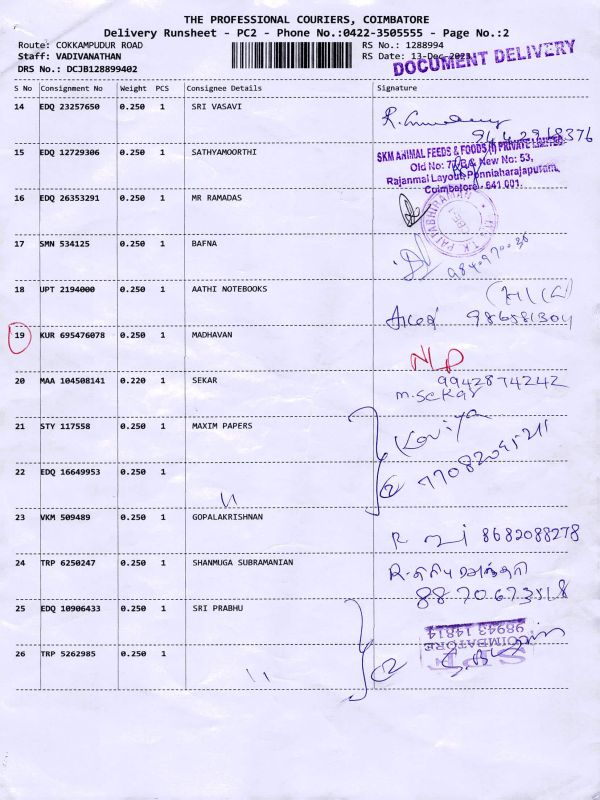 THE PROFESSIONAL COURIERS, COIMBATORE
Delivery Runsheet - PC2 - Phone No.:0422-3505555 - Page No.:2
Route: COKKAMPUDUR ROAD RS No.: 1288994
Staff: VADIVANATHAN RS Date: 13-Dec-2023
DRS No.: DCJB128899402 DOCUMENT DELIVERY
S No Consignment No Weight PCS Consignee Details Signature
14 EDQ 23257650 0.250 1 SRI VASAVI
15 EDQ 12729306 0.250 1 SATHYAMOORTHI
SKM ANIMAL FEEDS & FOODS (I) PRIVATE LIMITED
Old No: 77/B.C, New No: 53,
Rajanmal Layout, Ponniaharajapuram,
Coimbatore - 641 001.
16 EDQ 26353291 0.250 1 MR RAMADAS
17 SMN 534125 0.250 1 BAFNA
18 UPT 2194000 0.250 1 AATHI NOTEBOOKS
19 KUR 695476078 0.250 1 MADHAVAN
20 MAA 104508141 0.220 1 SEKAR 99428 74242
M.Sekar
21 STY 117558 0.250 1 MAXIM PAPERS Kaviya
22 EDQ 16649953 0.250 1 11 2
23 VKM 509489 0.250 1 GOPALAKRISHNAN 8682088278
24 TRP 6250247 0.250 1 SHANMUGA SUBRAMANIAN
25 EDQ 10906433 0.250 1 SRI PRABHU
COIMBATORE
98943 14814
26 TRP 5262985 0.250 1 11 2